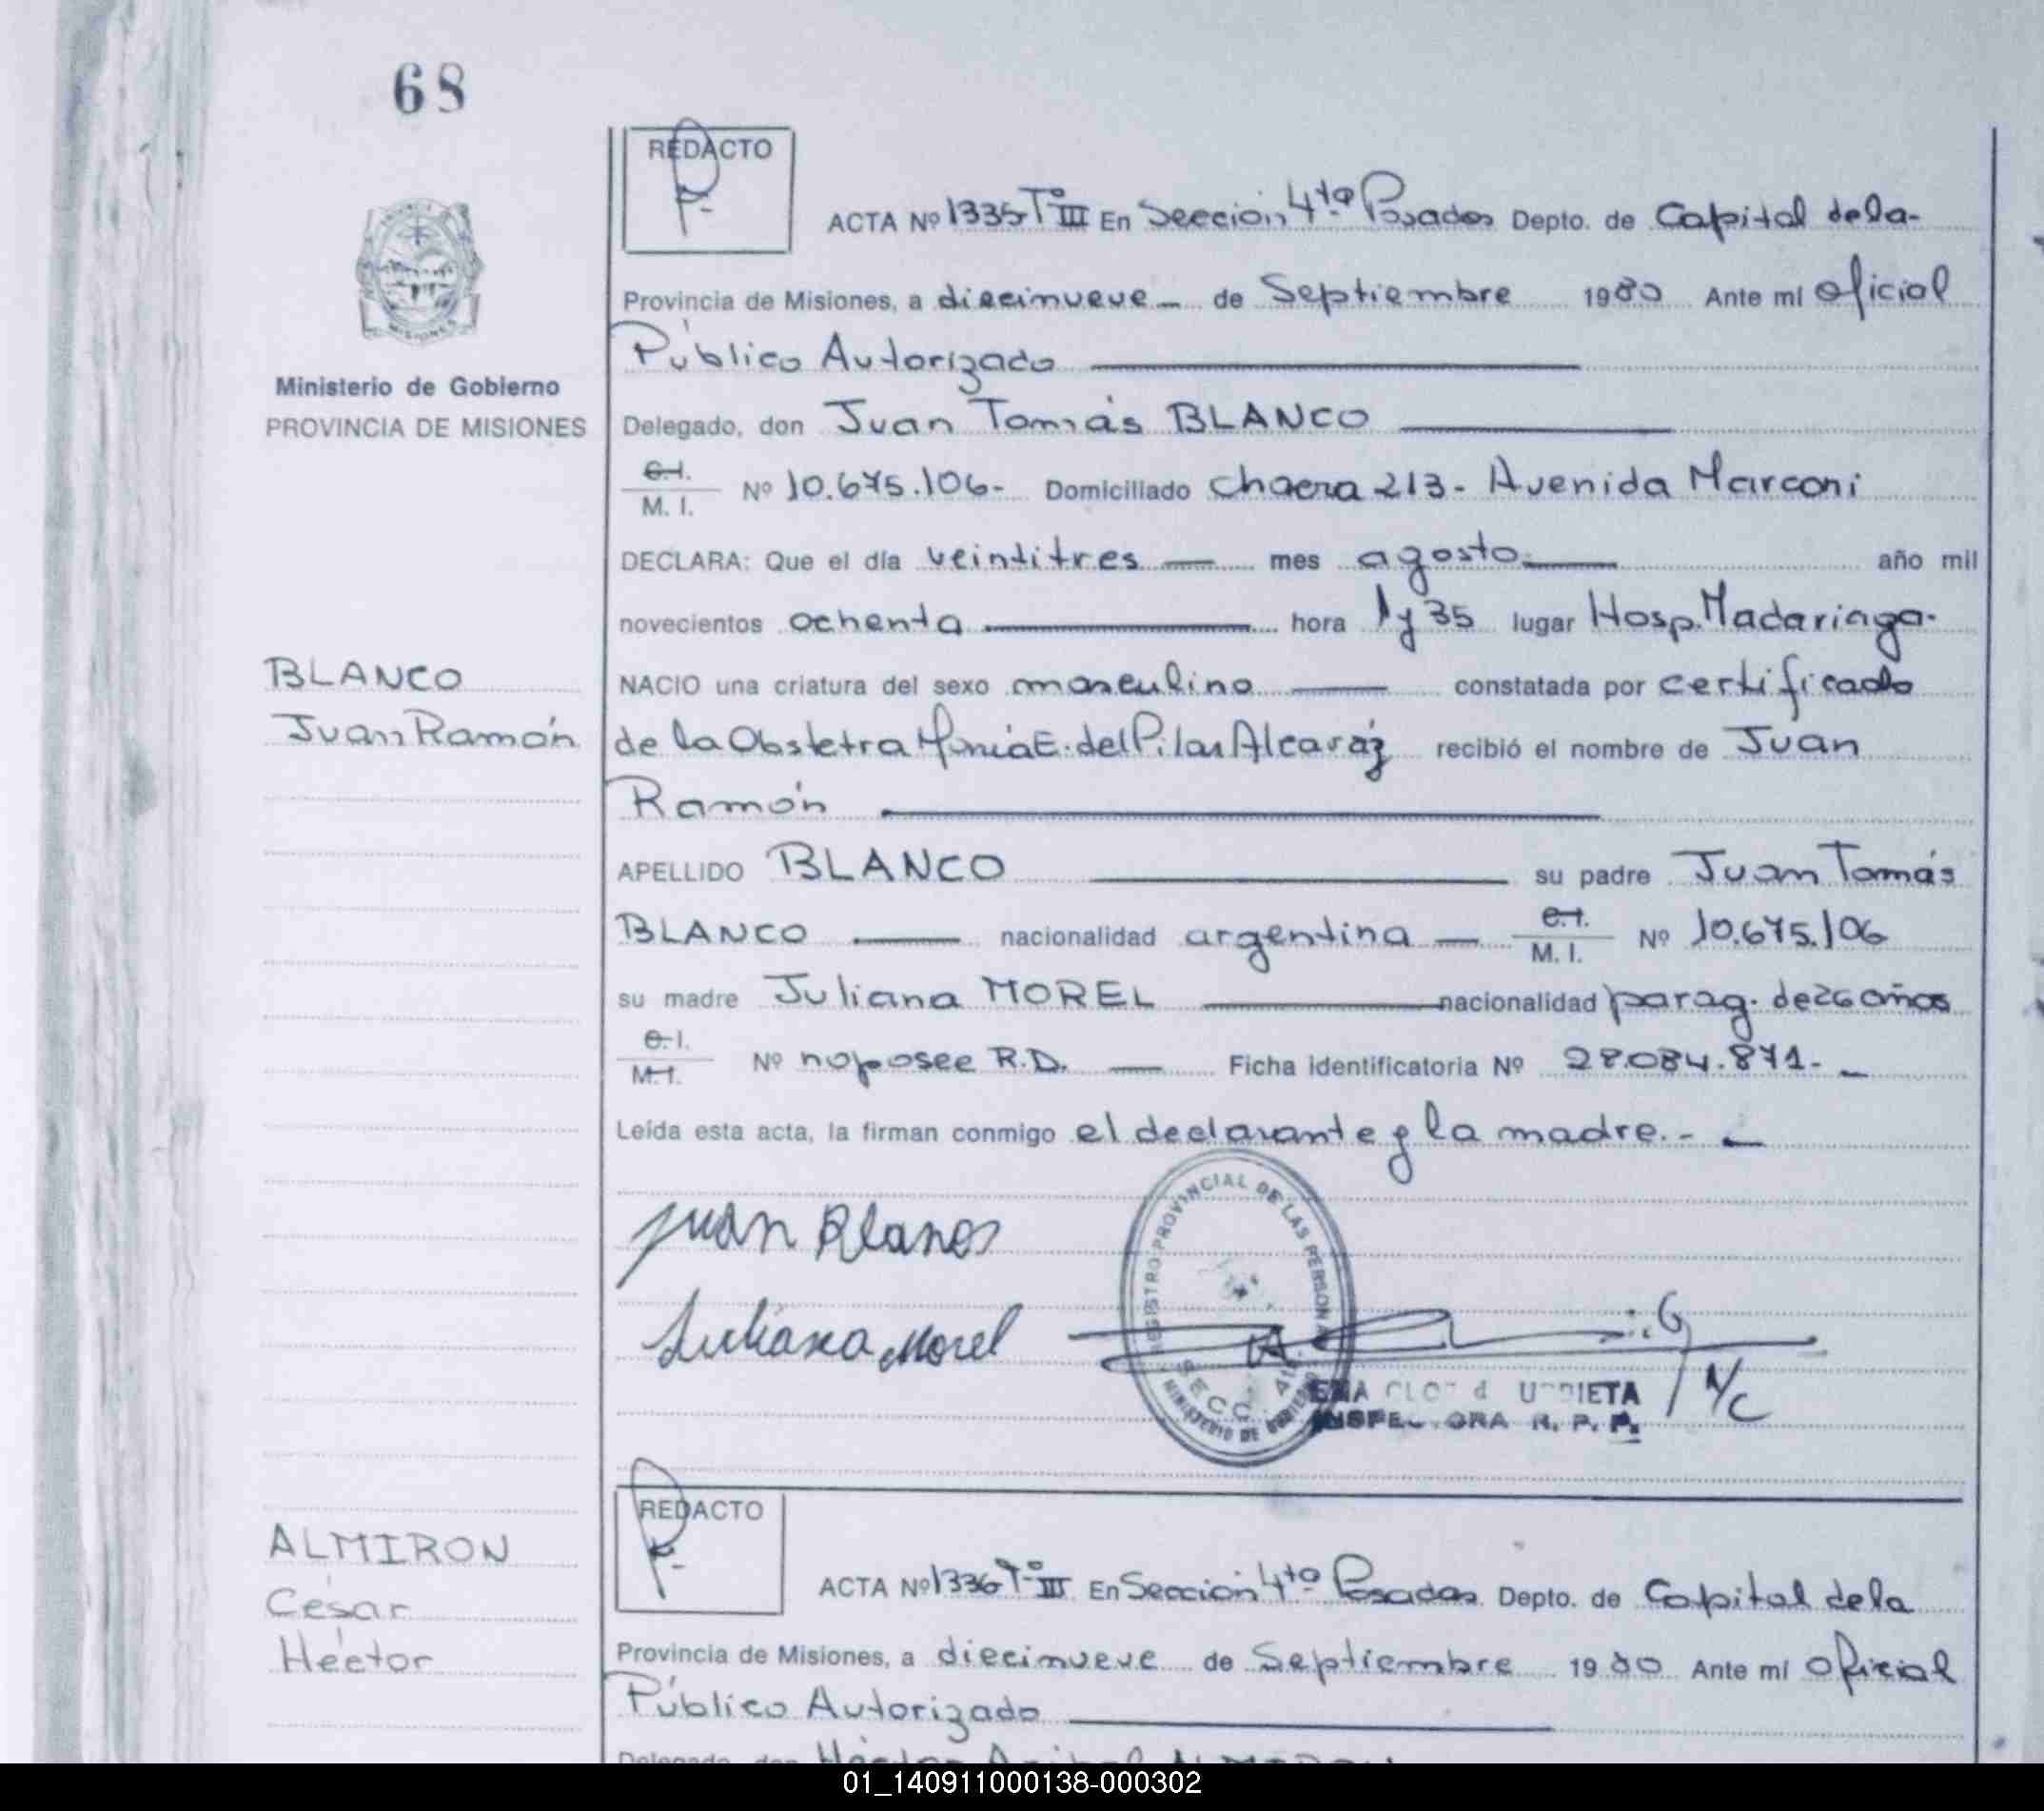 68
REDACTO
ACTA Nº 1335 Tº III En Sección 4ta Posadas Depto. de Capital de la-
Provincia de Misiones, a diecinueve de Septiembre 1980 Ante mí Oficial
Público Autorizado
Ministerio de Gobierno
PROVINCIA DE MISIONES
Delegado, don Juan Tomás BLANCO
C.I.
M. I. Nº 10.675.106- Domiciliado chacra 213- Avenida Marconi
DECLARA: Que el día veintitres mes agosto año mil
novecientos ochenta hora 1 y 35 lugar Hosp. Madariaga.
BLANCO
Juan Ramón
NACIO una criatura del sexo masculino constatada por certificado
de la Obstetra María E. del Pilar Alcaráz recibió el nombre de Juan
Ramón
APELLIDO BLANCO su padre Juan Tomás
BLANCO nacionalidad argentina C.I. M. I. Nº 10.675.106
su madre Juliana MOREL nacionalidad parag. de 26 años
C.I.
M.I. Nº no posee R.D. Ficha identificatoria Nº 28.084.871-
Leída esta acta, la firman conmigo el declarante y la madre.-
Juan Blanco
Juliana Morel
REGISTRO PROVINCIAL DE LAS PERSONAS
SECC. 4ta
MINISTERIO DE GOBIERNO
INSPECTORA R. P. P.
ALMIRON
César
Héctor
REDACTO
ACTA Nº 1336 Tº III En Sección 4to Posadas Depto. de Capital de la
Provincia de Misiones, a diecinueve de Septiembre 1980 Ante mí Oficial
Público Autorizado
Delegado, don Héctor Anibal ALMIRON
01_140911000138-000302